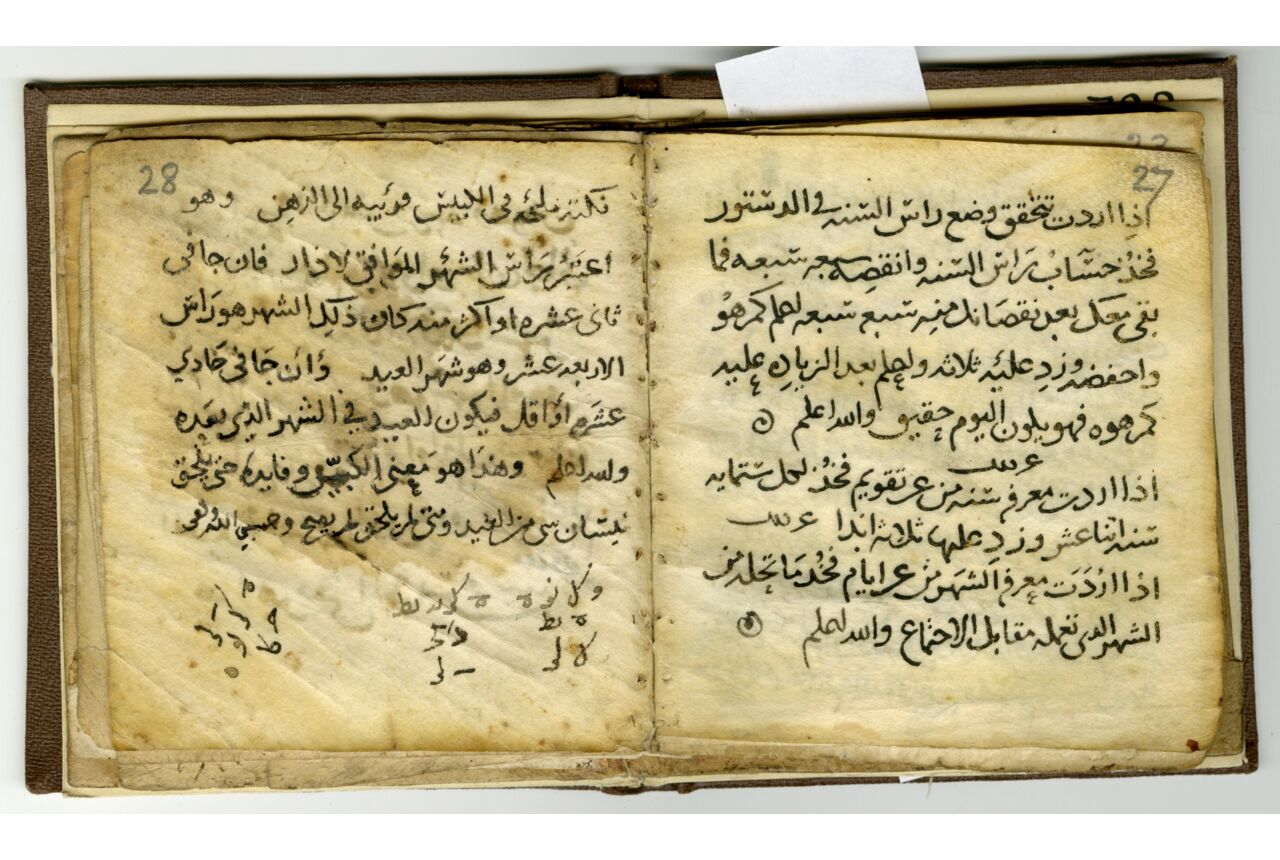 27
اذا اردت تتحقق وضع راس السنه في الدستور
فخذ حساب راس السنه وانقصه سبعه سبعه فما
بقي معك بعد نقصانك منه سبعه سبعه اعلم كم هو
واحفضه وزد عليه ثلاثه واعلم بعد الزياده عليه
كم هوه فهو يكون اليوم حقيق والله اعلم
اذا اردت معرفه سنه من عر تقويم فخذ لكل ستمايه
سنه اتناعشر وزد عليها ثلاثه ابدا
اذا اردت معرفه الشهر من عر ايام فخذ ما تجده من
الشهر الدى تعمله مقابل الاجتماع والله اعلم
28
نكته مليحه في الكبيس قريبه الى الزهن وهو
اعتبر براس الشهر الموافق لاذار فان جا في
ثاني عشره او اكثر منه كان ذلك الشهر هو راس
الاربعه عشر وهو شهر العيد وان جا في حادي
عشره او اقل فيكون العيد في الشهر الذي بعده
والله اعلم وهذا هو معنى الكبيس وفايده حتى يلحق
نيسان شي من العيد ومتى لم يلحق لم يصح وحسبي الله وكفى